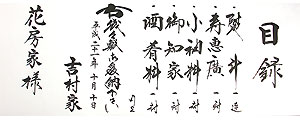 目録
一 熨斗 一連
一 寿恵廣 一対
一 小袖料 一封
一 御知家 一封
一 酒肴料 一封
以上
右幾久敷御受納下さい
平成二十二年十月十日
吉村家
花房家様